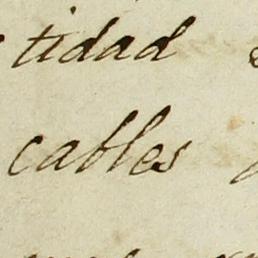 tidad
cables